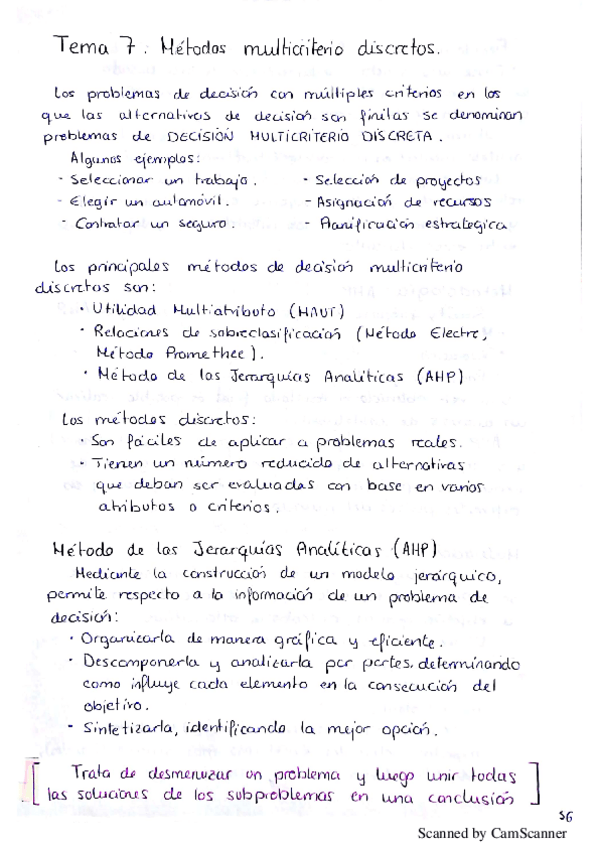 Tema 7. Métodos multicriterio discretos.
Los problemas de decisión con múltiples criterios en los
que las alternativas de decisión son finitas se denominan
problemas de DECISIÓN MULTICRITERIO DISCRETA.
Algunos ejemplos:
- Seleccionar un trabajo. - Selección de proyectos
- Elegir un automóvil. - Asignación de recursos
- Contratar un seguro. - Planificación estratégica
Los principales métodos de decisión multicriterio
discretos son:
· Utilidad Multiatributo (MAUT)
· Relaciones de sobreclasificación (Método Electre,
Método Promethee).
· Método de las Jerarquías Analíticas (AHP)
Los métodos discretos:
· Son fáciles de aplicar a problemas reales.
· Tienen un número reducido de alternativas
que deban ser evaluadas con base en varios
atributos o criterios.
Método de las Jerarquías Analíticas (AHP)
Mediante la construcción de un modelo jerárquico,
permite respecto a la información de un problema de
decisión:
· Organizarla de manera gráfica y eficiente.
· Descomponerla y analizarla por partes, determinando
como influye cada elemento en la consecución del
objetivo.
· Sintetizarla, identificando la mejor opción.
[ Trata de desmenuzar un problema y luego unir todas
las soluciones de los subproblemas en una conclusión ]
56
Scanned by CamScanner